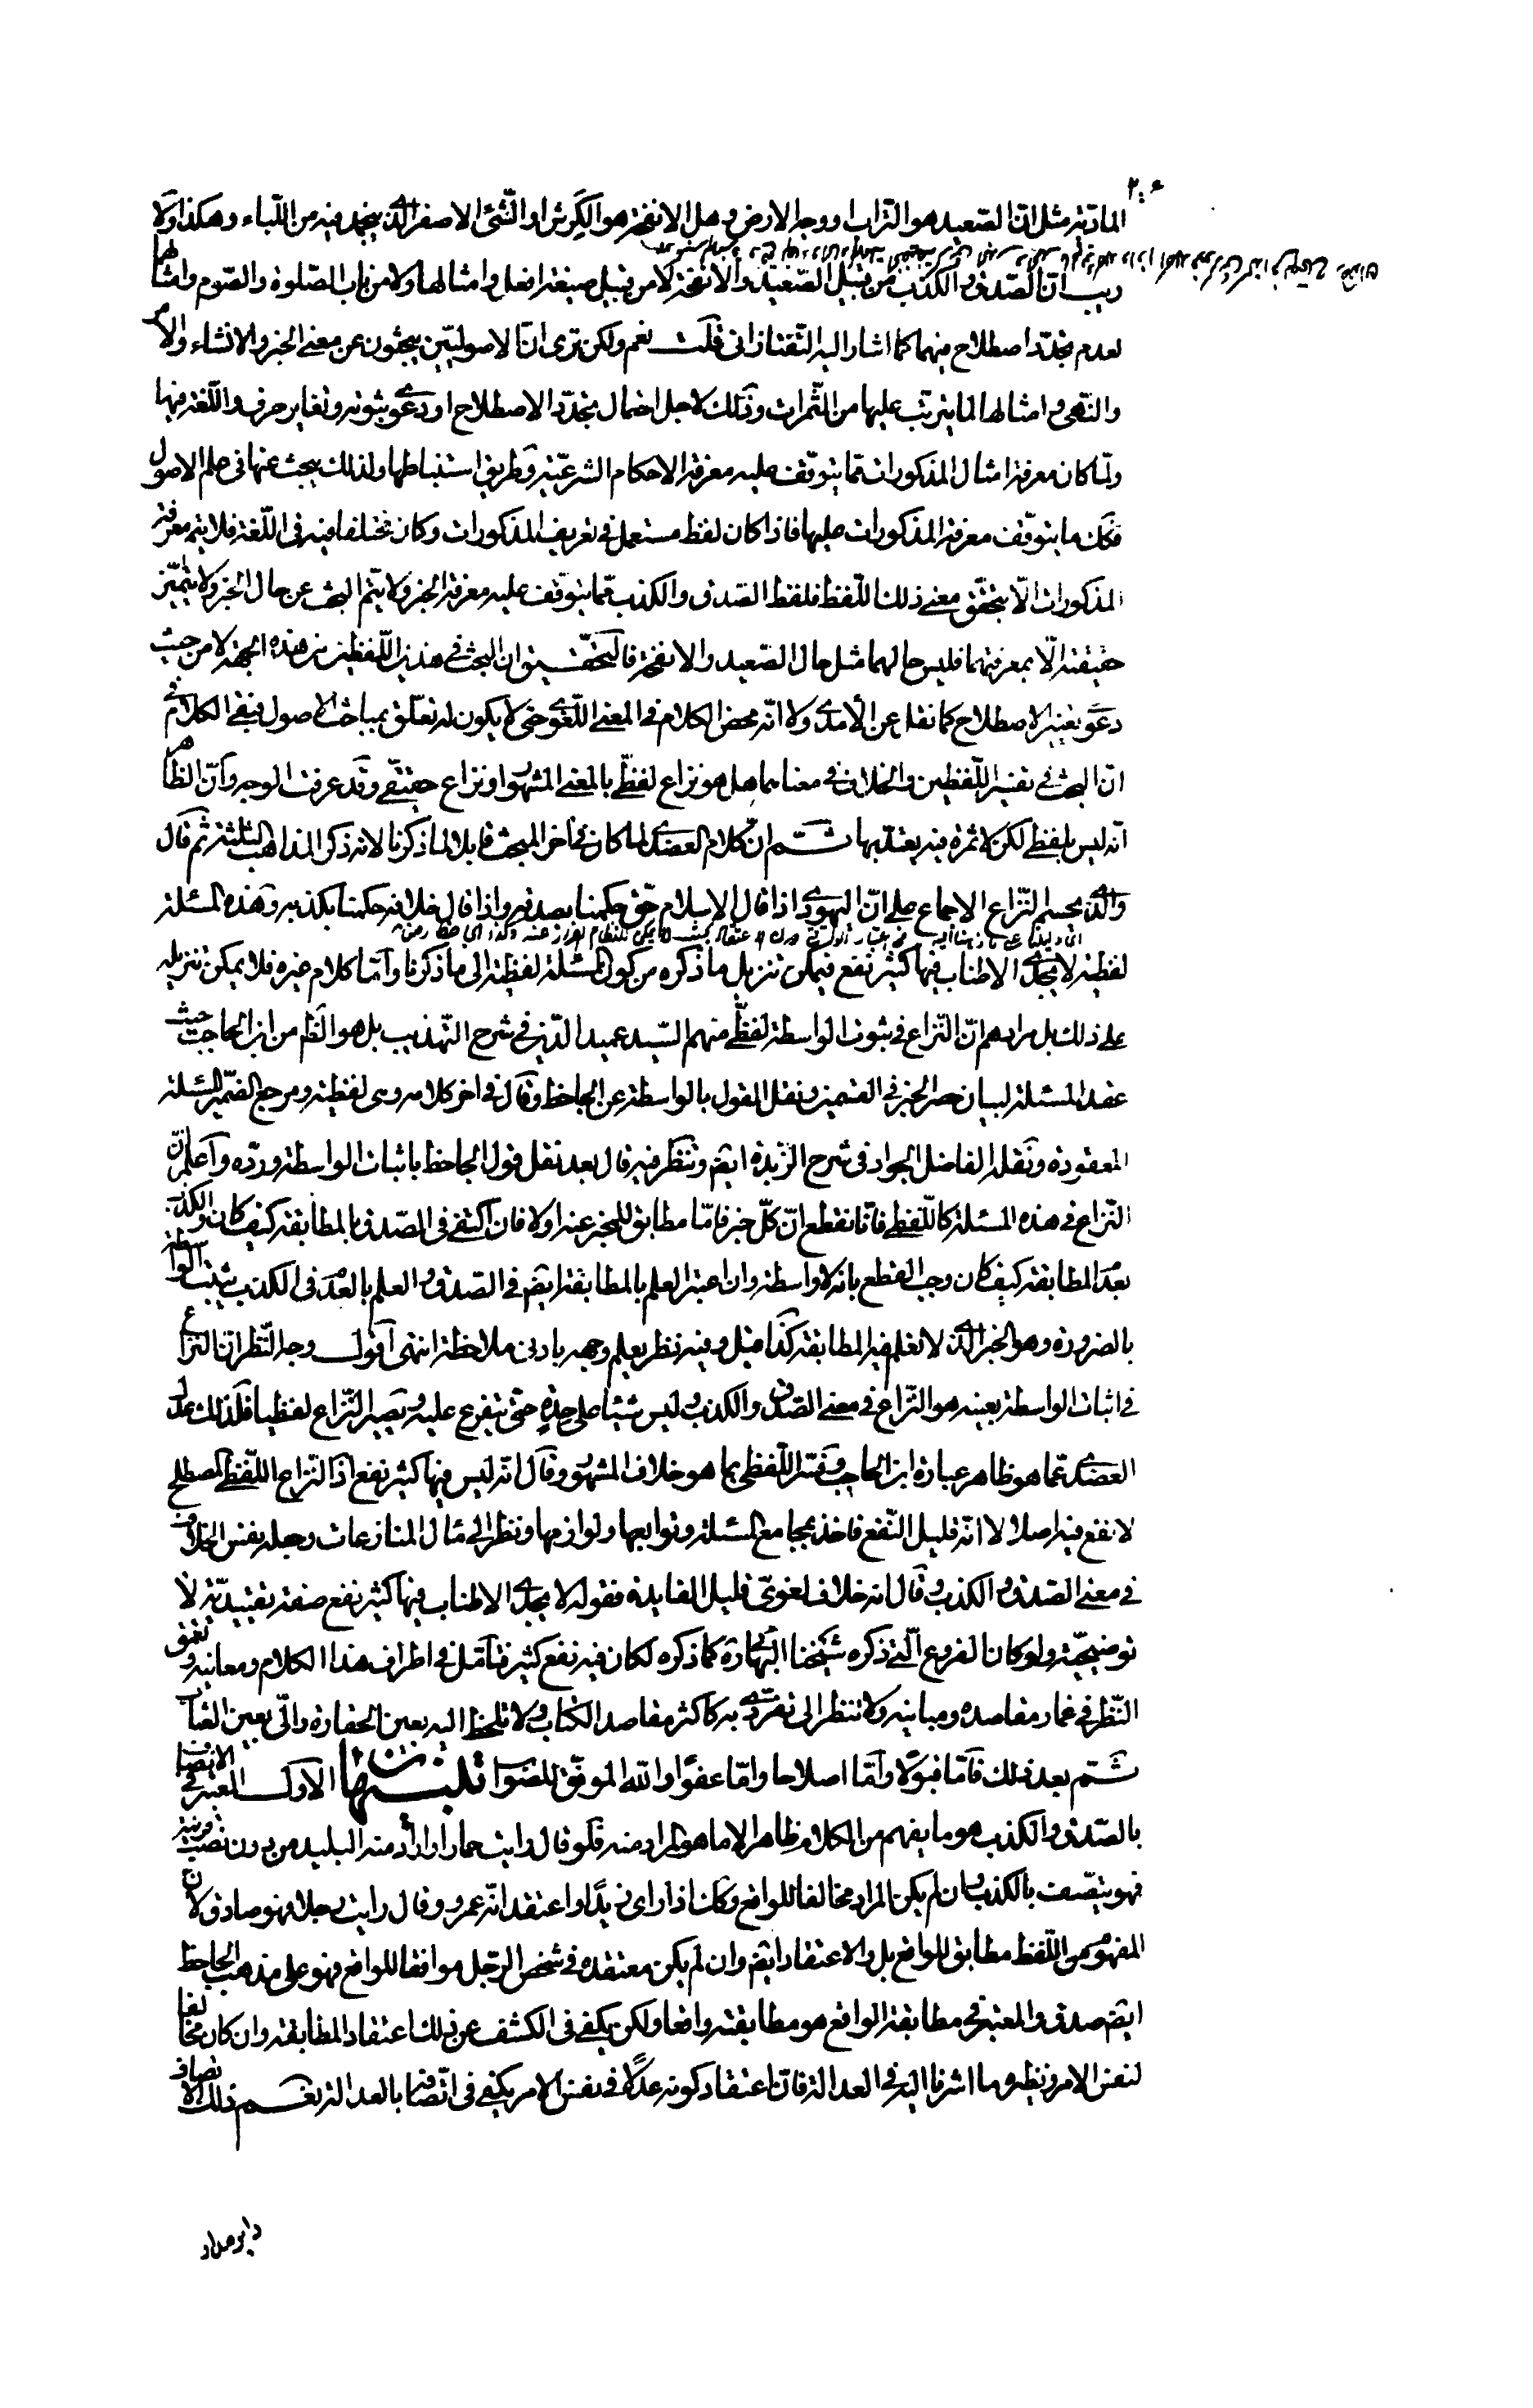 ٢٠٤
المادّية مثل انّ الصّعيد هو التراب او وجه الارض وهل الانفحة هو الكرش او الشّئ الاصفر الّذى ينجمد فيه من اللّباء وهكذا ولا
ريب انّ الصّدق و الكذب من قبيل الصّعيد والانفحة لا من قبيل صيغة افعل وامثالها ولا من باب الصّلوة والصّوم وامثالهما
لعدم تجدّد اصطلاح فيهما كما اشار اليه التّفتازانى قلت نعم ولكن ترى انّ الاصوليّين يبحثون عن معنى الخبر والانشاء والامر
والنّهى وامثالها لما يترتّب عليها من الثّمرات وذلك لاجل احتمال تجدّد الاصطلاح او دعوى ثبوته وتغاير عرف واللّغة فيها
ولمّا كان معرفة امثال المذكورات ممّا يتوقّف عليه معرفة الاحكام الشرعيّة وطريق استنباطها ولذلك يبحث عنها فى علم الاصول
فكك ما يتوقّف معرفة المذكورات عليها فاذا كان لفظ مستعمل فى تعريف المذكورات وكان مختلفا فيه فى اللّغة فلا يتم معرفة
المذكورات الّا بتحقّق معنى ذلك اللّفظ فلفظ الصّدق والكذب ممّا يتوقّف عليه معرفة الخبر ولا يتمّ البحث عن حال الخبر ولا يتميّز
حقيقته الّا بمعرفتهما فليس حالهما مثل حال الصّعيد والانفحة فالتحقيق ان البحث فى هذين اللّفظين من هذه الجهة لا من حيث
دعوى تغيير الاصطلاح كما نقل عن الآمدى ولا انّه محض الكلام فى المعنى اللّغوى حتّى لا يكون له تعلّق بمباحث الاصول فبقى الكلام فى
انّ البحث فى تفسير اللّفظين والخلاف فى معناهما هل هو نزاع لفظىّ بالمعنى المشهور او نزاع حقيقى وقد عرفت الوجه وانّ الظاهر
انّه ليس بلفظى لكن لا ثمرة فيه يعتدّ بها ثم انّ كلام العضدى لما كان فى اخر المبحث قابلا لما ذكرنا لانه ذكر المذاهب الثلثة ثم قال
والّذى يحسم النّزاع الاجماع على انّ اليهودى اذا قال الاسلام حقّ حكمنا بصدقه واذا قال خلافه حكمنا بكذبه وهذه المسئلة
لفظيّة لا يجدى الاطناب فيها كثير نفع فيمكن تنزيل ما ذكره من كون المسئلة لفظيّة الى ما ذكرنا وامّا كلام غيره فلا يمكن تنزيله
على ذلك بل مرادهم انّ النّزاع فى ثبوت الواسطة لفظىّ منهم السّيد عميد الدّين فى شرح التّهذيب بل هو الظّ من ابن الحاجب حيث
عقد المسئلة لبيان حصر الخبر فى القسمين ونقل القول بالواسطة عن الجاحظ وقال فى اخر كلامه وهى لفظيّة ومرجع الضّمير المسئلة
المعقودة ونقله الفاضل الجواد فى شرح الزّبدة ايضً وتنظّر فيه قال بعد نقل قول الجاحظ باثبات الواسطة وردّه واعلم انّ
النّزاع فى هذه المسئلة كاللّفظى فانّا نقطع انّ كلّ خبر فامّا مطابق للمخبر عنه او لا فان اكتفى فى الصّدق بالمطابقة كيف كان والكذب
بعدم المطابقة كيف كان وجب القطع بانه لا واسطة وان اعتبر العلم بالمطابقة ايضً فى الصّدق و العلم بالعدم فى الكذب يثبت الواسطة
بالضرورة وهو الخبر الّذى لا نعلم فيه المطابقة كذا قيل وفيه نظر يعلم وجهه بادنى ملاحظة انتهى اقول وجه النّظر انّ النزاع
فى اثبات الواسطة بعينه هو النّزاع فى معنى الصّدق والكذب وليس شيئا على حدة حتّى يتفرع عليه ويصير النّزاع لفظيا فلذلك عدل
العضدى عمّا هو ظاهر عبارة ابن الحاجب وفسّر اللّفظى بما هو خلاف المشهور وقال انّه ليس فيها كثير نفع اذ النّزاع اللّفظى المصطلح
لا نفع فيه اصلا لا انّه قليل النّفع فاخذ بمجامع المسئلة وتوابعها ولوازمها ونظر الى مال المنازعات وجعله نفس الخلاف
فى معنى الصّدق و الكذب وقال انه خلاف لغوىّ قليل الفايدة فقوله لا يجدى الاطناب فيها كثير نفع صفة تقييديّة لا
توضيحيّة ولو كان الفروع الّتى ذكره شيخنا البهائى ره كما ذكره لكان فيه نفع كثير فتأمّل فى اطراف هذا الكلام ومعانيه وتعمّق
النّظر فى غمار مقاصده ومبانيه ولا تنظر الى تفرّدى به كاكثر مقاصد الكتاب ولا تلحظ اليه بعين الحقارة والّى بعين العتاب
ثم بعد ذلك فامّا قبولا وامّا اصلاحا وامّا عفوا والله الموفّق للصّواب تنبيهات الاول المعتبر فى الاتّصاف
بالصّدق والكذب هو ما يفهم من الكلام ظاهرا لا ما هو المراد منه فلو قال رايت حمارا واراد منه البليد من دون نصب قرينة
فهو يتّصف بالكذب وان لم يكن المراد مخالفا للواقع وكك اذا راى زيدًا واعتقد انّه عمرو وقال رايت رجلا فهو صادق لانّ
المفهوم من اللّفظ مطابق للواقع بل والاعتقاد ايضً وان لم يكن معتقده فى شخص الرّجل موافقا للواقع فهو على مذهب الجاحظ
ايضً صدق والمعتبر فى مطابقة الواقع هو مطابقته واقعا ولكن يكفى فى الكشف عن ذلك اعتقاد المطابقة وان كان مخالفا
لنفس الامر ونظيره ما اشرنا اليه فى العدالة فانّ اعتقاد كونه عدلًا فى نفس الامر يكفى فى اتّصافه بالعدالة نعم ذلك الاتصاف